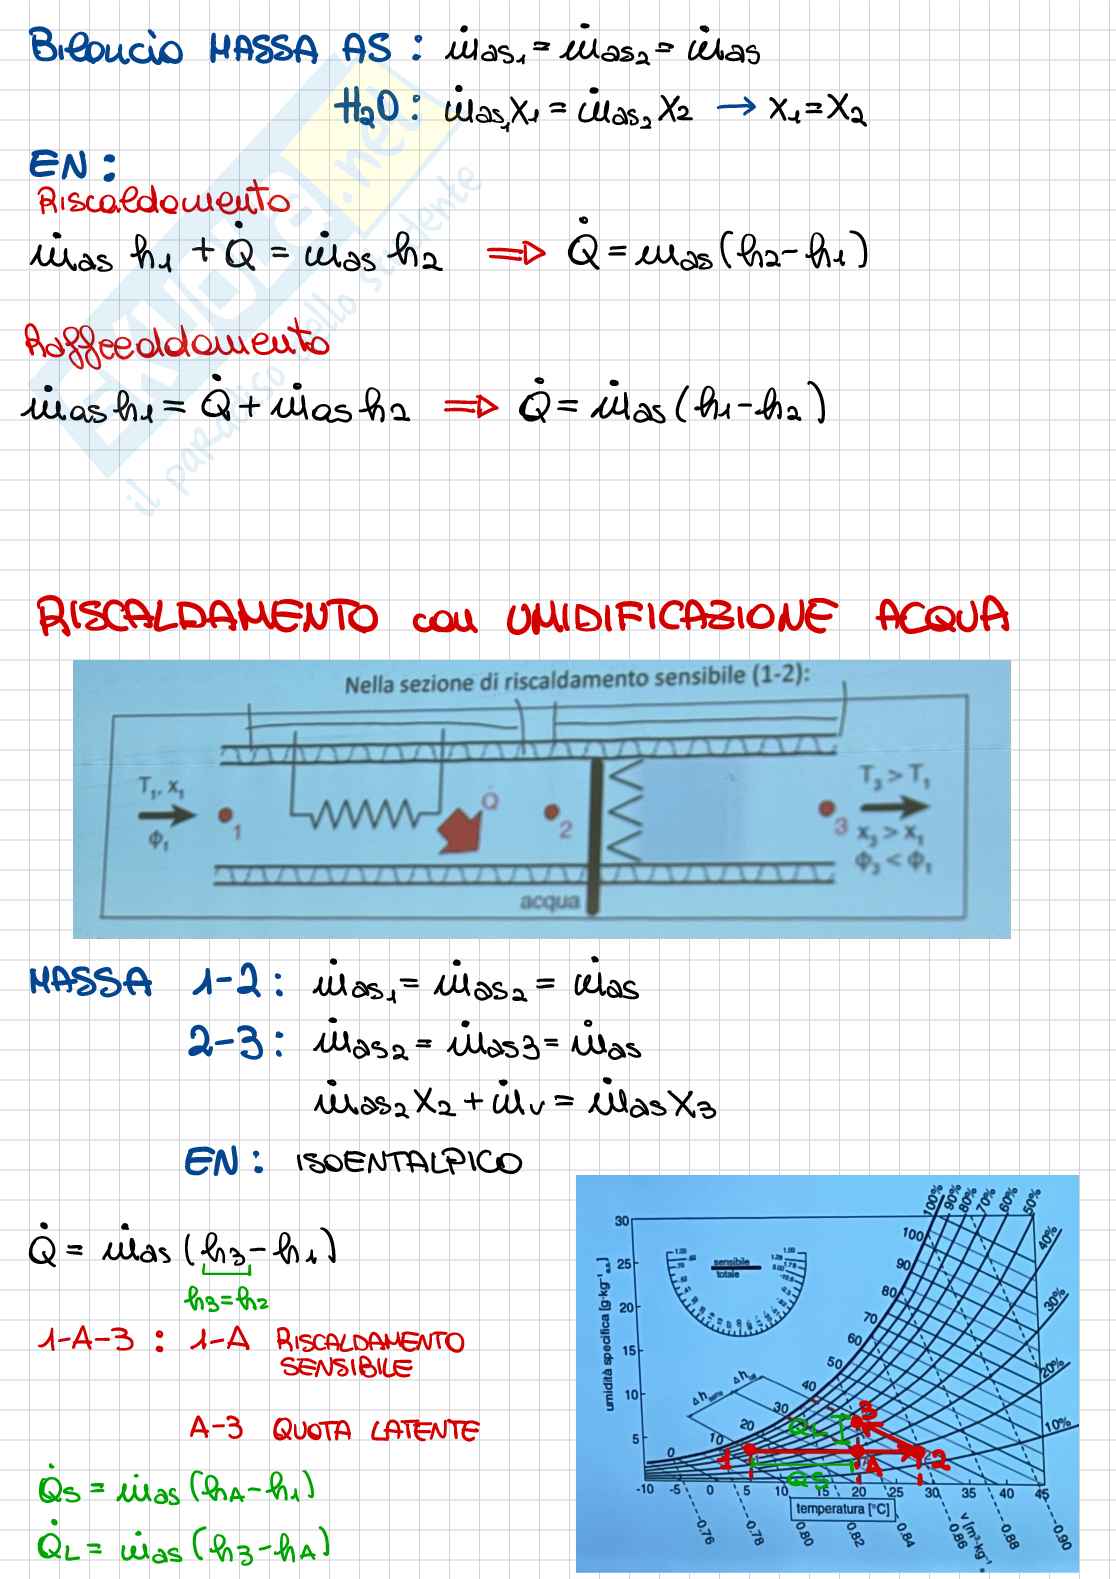 Bilancio MASSA AS : ṁas₁ = ṁas₂ = ṁas
H₂O : ṁas₁x₁ = ṁas₂ x₂ → x₁ = x₂
EN :
Riscaldamento
ṁas h₁ + Q̇ = ṁas h₂ ⇒ Q̇ = mas (h₂ - h₁)
Raffreddamento
ṁas h₁ = Q̇ + ṁas h₂ ⇒ Q̇ = ṁas (h₁ - h₂)
il paradiso dello studente
RISCALDAMENTO con UMIDIFICAZIONE ACQUA
Nella sezione di riscaldamento sensibile (1-2):
T₁, x₁
ϕ₁
1
Q̇
2
acqua
3
T₃ > T₁
x₃ > x₁
ϕ₃ < ϕ₁
MASSA 1-2 : ṁas₁ = ṁas₂ = ṁas
2-3 : ṁas₂ = ṁas3 = ṁas
ṁas₂ x₂ + ṁv = ṁas x₃
EN : ISOENTALPICO
Q̇ = ṁas (h₃ - h₁)
h₃ = h₂
1-A-3 : 1-A RISCALDAMENTO
SENSIBILE
A-3 QUOTA LATENTE
Q̇s = ṁas (hA - h₁)
Q̇L = ṁas (h₃ - hA)
100% 90% 80% 70% 60% 50%
40%
30%
20%
10%
30
25
20
15
10
5
umidità specifica [g·kg⁻¹a.s.]
sensibile
totale
100
90
80
70
60
50
40
30
20
10
0
1
QL
3
A
2
Qs
-10 -5 0 5 10 15 20 25 30 35 40 45
temperatura [°C]
0.76 0.78 0.80 0.82 0.84 0.86 0.88 0.90
v [m³·kg⁻¹